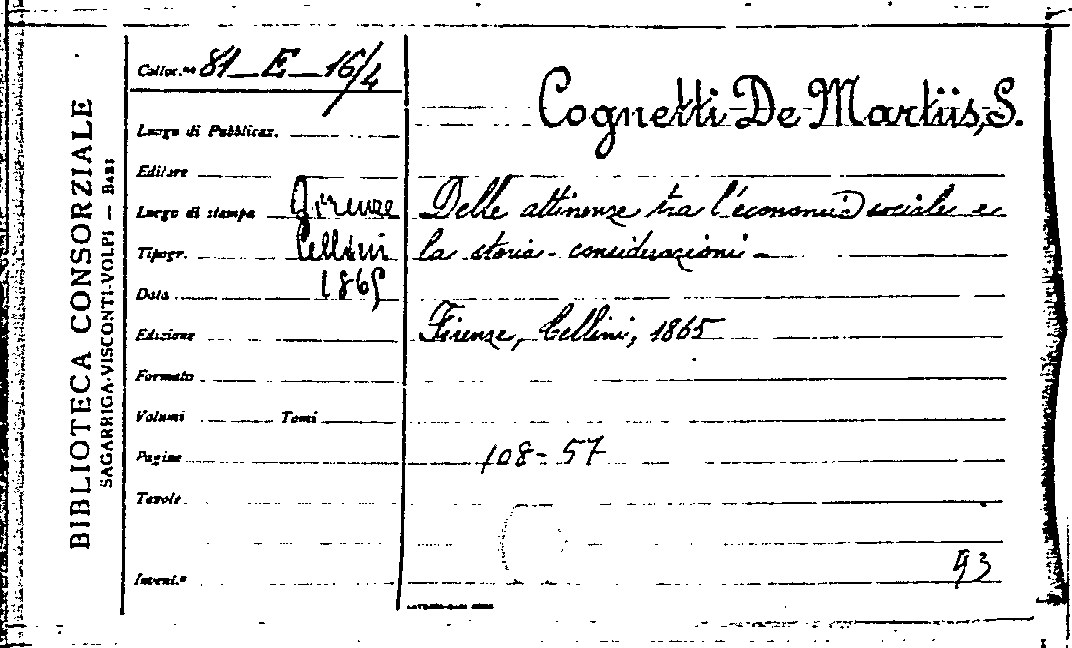 BIBLIOTECA CONSORZIALE
SAGARRIGA-VISCONTI-VOLPI — BARI
Colloc.ne 81_E_16/4
Luogo di Pubblicaz.
Editore
Luogo di stampa Firenze
Tipogr. Cellini
Data 1865
Edizione
Formato
Volumi Tomi
Pagine
Tavole
Invent.º
Cognetti De Martiis, S.
Delle attinenze tra l'economia sociale e
la storia - considerazioni -
Firenze, Cellini, 1865
108-57
93